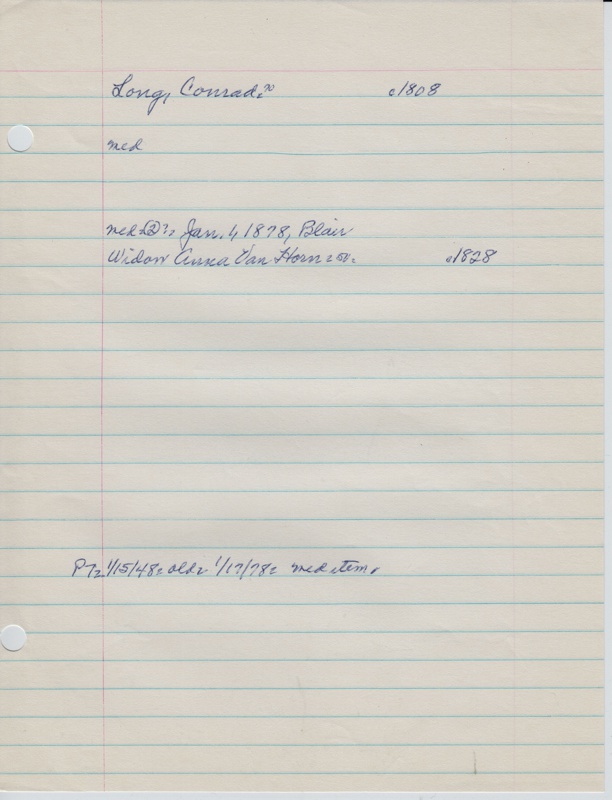 Long, Conrad 70 c1808
med
med (2) ?, Jan. 4 1878, Blair
Widow Anna Van Horn 50 c1828
P7 1/15/48: old 1/17/78: med item